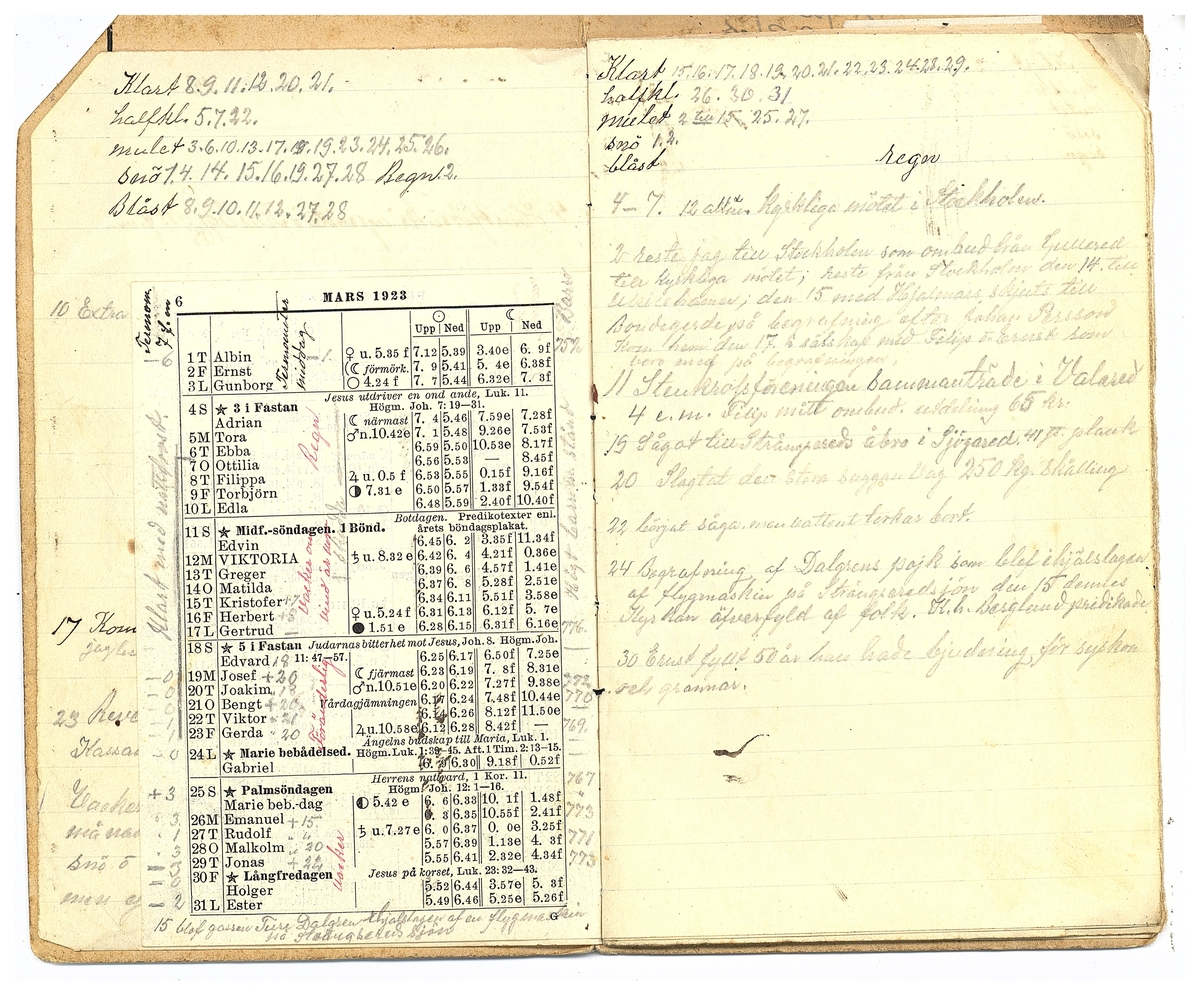 Klart 8.9.11.12.20.21.
halfkl. 5.7.22.
mulet 3.6.10.13.17.18.19.23.24.25.26.
snö 1.4.14.15.16.19.27.28 Regn 2.
Blåst 8.9.10.11.12.27.28
10 Extra
17 Kom
23 Reve
Kassa
Vacker
månad
snö o
men ej
Termom.
7 f.m
Klart med nattfrost.
6
MARS 1923
Termometer
middag
Upp Ned Upp Ned
1 T Albin ♀ u. 5.35 f 7.12 5.39 3.40e 6. 9f
2 F Ernst ☾ förmörk. 7. 9 5.41 5. 4e 6.38f
3 L Gunborg ○ 4.24 f 7. 7 5.44 6.32e 7. 3f
Jesus utdriver en ond ande, Luk. 11.
4 S ★ 3 i Fastan Högm. Joh. 7: 19—31.
Adrian ☾ närmast 7. 4 5.46 7.59e 7.28f
5 M Tora ♂ n. 10.42e 7. 1 5.48 9.26e 7.53f
6 T Ebba 6.59 5.50 10.53e 8.17f
7 O Ottilia 6.56 5.53 — 8.45f
8 T Filippa ♃ u. 0.5 f 6.53 5.55 0.15f 9.16f
9 F Torbjörn ◑ 7.31 e 6.50 5.57 1.33f 9.54f
10 L Edla 6.48 5.59 2.40f 10.40f
Botdagen. Predikotexter enl.
11 S ★ Midf.-söndagen. 1 Bönd. årets böndagsplakat.
Edvin 6.45 6. 2 3.35f 11.34f
12 M VIKTORIA ♄ u. 8.32 e 6.42 6. 4 4.21f 0.36e
13 T Greger 6.39 6. 6 4.57f 1.41e
14 O Matilda 6.37 6. 8 5.28f 2.51e
15 T Kristofer 6.34 6.11 5.51f 3.58e
16 F Herbert ♀ u. 5.24 f 6.31 6.13 6.12f 5. 7e
17 L Gertrud ● 1.51 e 6.28 6.15 6.31f 6.16e
18 S ★ 5 i Fastan Judarnas bitterhet mot Jesus, Joh. 8. Högm. Joh.
Edvard 18 11: 47—57. 6.25 6.17 6.50f 7.25e
19 M Josef +20 ☾ fjärmast 6.23 6.19 7. 8f 8.31e
20 T Joakim ♂ n. 10.51e 6.20 6.22 7.27f 9.38e
21 O Bengt Vårdagjämningen 6.17 6.24 7.48f 10.44e
22 T Viktor 6.14 6.26 8.12f 11.50e
23 F Gerda 20 ♃ u. 10.58e 6.12 6.28 8.42f —
Ängelns budskap till Maria, Luk. 1.
24 L ★ Marie bebådelsed. Högm. Luk. 1: 39—45. Aft. 1 Tim. 2: 13—15.
Gabriel 6. 9 6.30 9.18f 0.52f
Herrens nattvard, 1 Kor. 11.
25 S ★ Palmsöndagen Högm. Joh. 12: 1—16.
Marie beb.-dag ◐ 5.42 e 6. 6 6.33 10. 1f 1.48f
26 M Emanuel +15 6. 3 6.35 10.55f 2.41f
27 T Rudolf ♄ u. 7.27 e 6. 0 6.37 0. 0e 3.25f
28 O Malkolm 20 5.57 6.39 1.13e 4. 3f
29 T Jonas +22 5.55 6.41 2.32e 4.34f
30 F ★ Långfredagen Jesus på korset, Luk. 23: 32—43.
Holger 5.52 6.44 3.57e 5. 3f
31 L Ester 5.49 6.46 5.25e 5.26f
G
Regn
föränderlig
vacker
776.
772
770
769.
767
773
771
773
15 blef gossen Ture Dalgren ihjälslagen af en flygmaskin
på Strängsereds sjön
Klart 15.16.17.18.19.20.21.22.23.24.28.29.
halfkl. 26.30.31
mulet 2 till 15. 25.27.
snö 1.2.
blåst regn
4–7. 12 allm. Kyrkliga mötet i Stockholm.
2 reste jag till Stockholm som ombud från Gullered
till Kyrkliga mötet; reste från Stockholm den 14. till
Ulricehamn; den 15 med Hjalmars skjuts till
Bondegerde på begrafning efter Johan Persson
Kom hem den 17. i sällskap med Filip o Ernst som
voro med på begrafningen.
11 Stenkrossföreningen sammanträde i Valared
4 e.m. Filip mitt ombud. utdelning 65 kr.
19 Sågat till Strängsereds åbro i Sjögared. 41 st. plank
20 Slagtat den stora suggan väg 250 kg. Skålling
22 börjat såga, men vattent torkar bort.
24 Begrafning af Dalgrens pojk som blef ihjälslagen
af flygmaskin på Strängseredsjön den 15 dennes
Kyrkan äfverfyld af folk. K.h. Berglund predikade
30 Ernst fyllt 50 år han hade bjudning för syskon
och grannar.